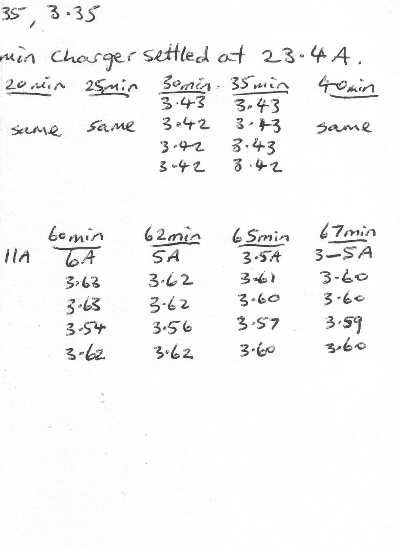 35, 3.35
min charger settled at 23.4A.
20min 25min 30min. 35min 40min
3.43 3.43
same same 3.42 3.43 same
3.42 3.43
3.42 3.42
60min 62min 65min 67min
11A 6A 5A 3.5A 3-5A
3.63 3.62 3.61 3.60
3.63 3.62 3.60 3.60
3.54 3.56 3.57 3.59
3.62 3.62 3.60 3.60